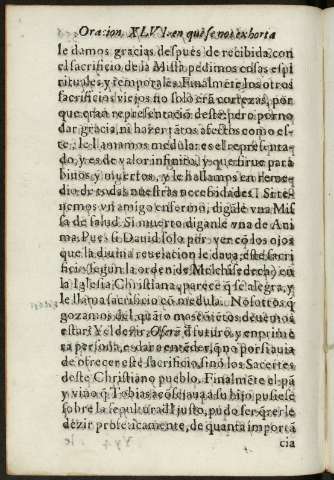 Oracion. XLVI. en que se nos exhorta
le damos gracias después de recibida, con
el sacrificio de la Missa pedimos cosas espi
rituales y temporales. Finalmēte los otros
sacrificios viejos nō solo erā cortezas, por
que erā representaciō deste, pero por no
dar gracia, ni hazer tātos afectos como es-
te, le llamamos medula: es el representa-
do, y es de valor infinito, y que sirue para
biuos, y muertos, y le hallamos en reme-
dio de todas nuestras necesidades. Si te-
nemos vn amigo enfermo, digāle vna Mis
sa de salud. Si muerto diganle vna de Ani
ma. Pues si Dauid solo por ver cō los ojos
que la diuina reuelacion le daua, este sacri
ficio (segun la orden de Melchisedech) en
la Iglesia Christiana, parece q̄ se alegra, y
le llama sacrificio cō medula. Nosotros q̄
gozamos del, quāto mas cōtētos deuemos
estar? Y el dezir, Oferā d̄ futuro, y en prime
ra persona, es dar a entēder, q̄ no por si auia
de ofrecer este sacrificio, sinō los Sacerdotes
deste Christiano pueblo. Finalmēte el pā
y vino q̄ Tobias acōsejaua a su hijo pusiese
sobre la sepultura d̄l justo, pudo ser q̄rer le
dezir proféticamente, de quanta importā
cia